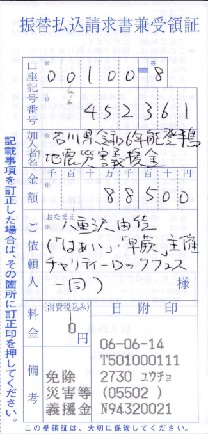 振替払込請求書兼受領証
口座記号番号
00100 8
452361
加入者名
石川県令和6年能登半島
地震災害義援金
金額
千 百 十 万 千 百 十 円
88500
ご依頼人
おなまえ
八重沢由佳
(「はぁい」「早蕨」主催
チャリティーロックフェス
一同)
様
料金
(消費税込み)
0 円
備考
免除
災害等
義援金
日附印
06-06-14
T501000111
2730 ユウチョ
(05502)
N94320021
記載事項を訂正した場合は、その箇所に訂正印を押してください。
この受領証は、大切に保管してください。